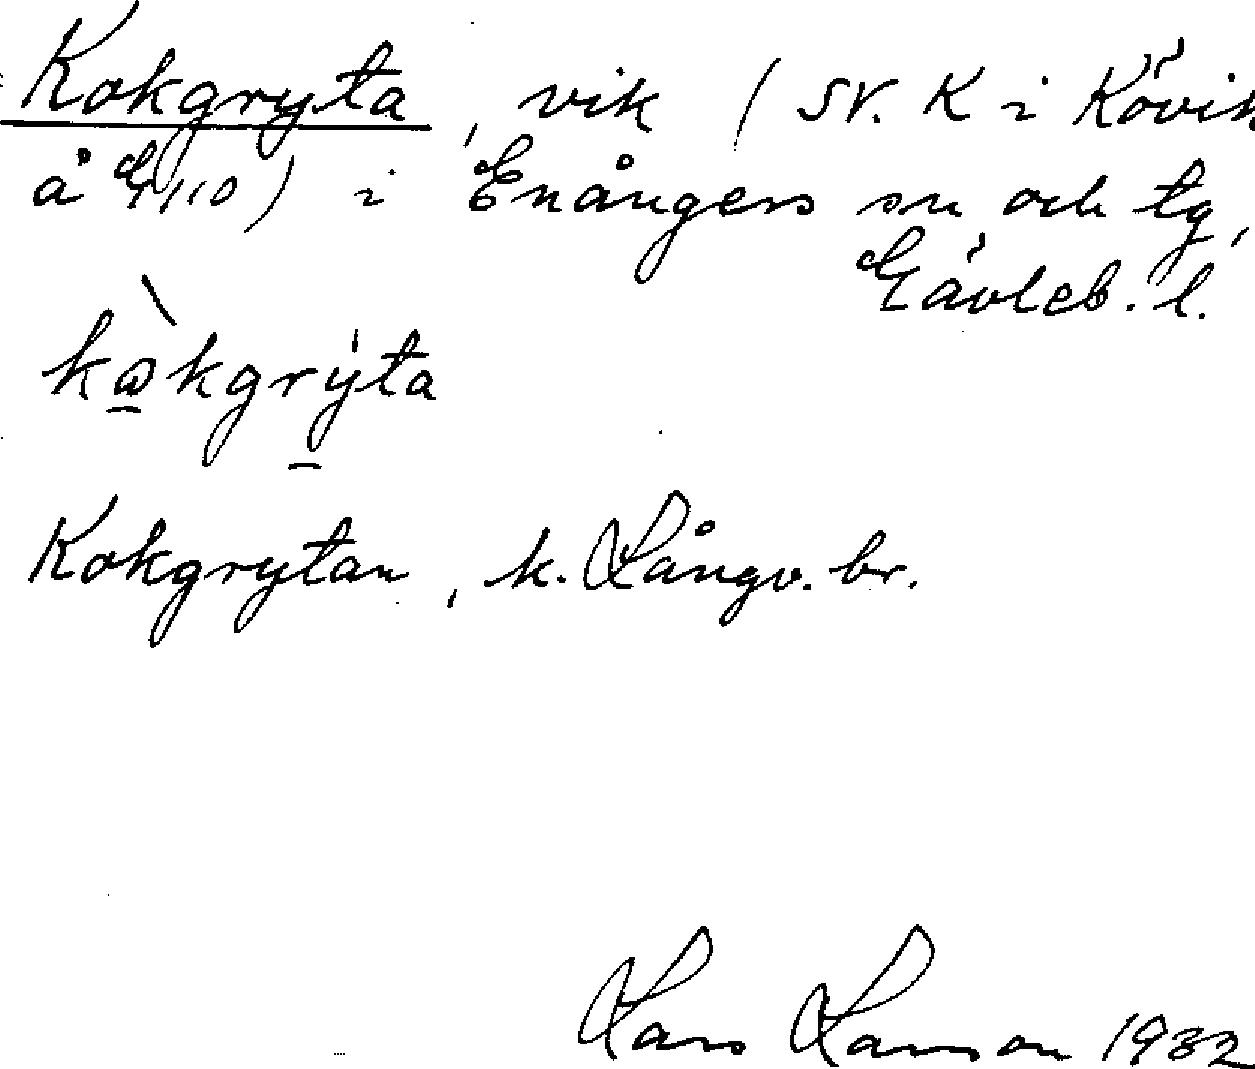 Kokgryta, vik (SV. K i Kövik
å G110) i Enångers sn och tg,
Gävleb. l.
kωkgrỳta
Kokgrytan, k. Långv. br.
Lars Larsson 1932